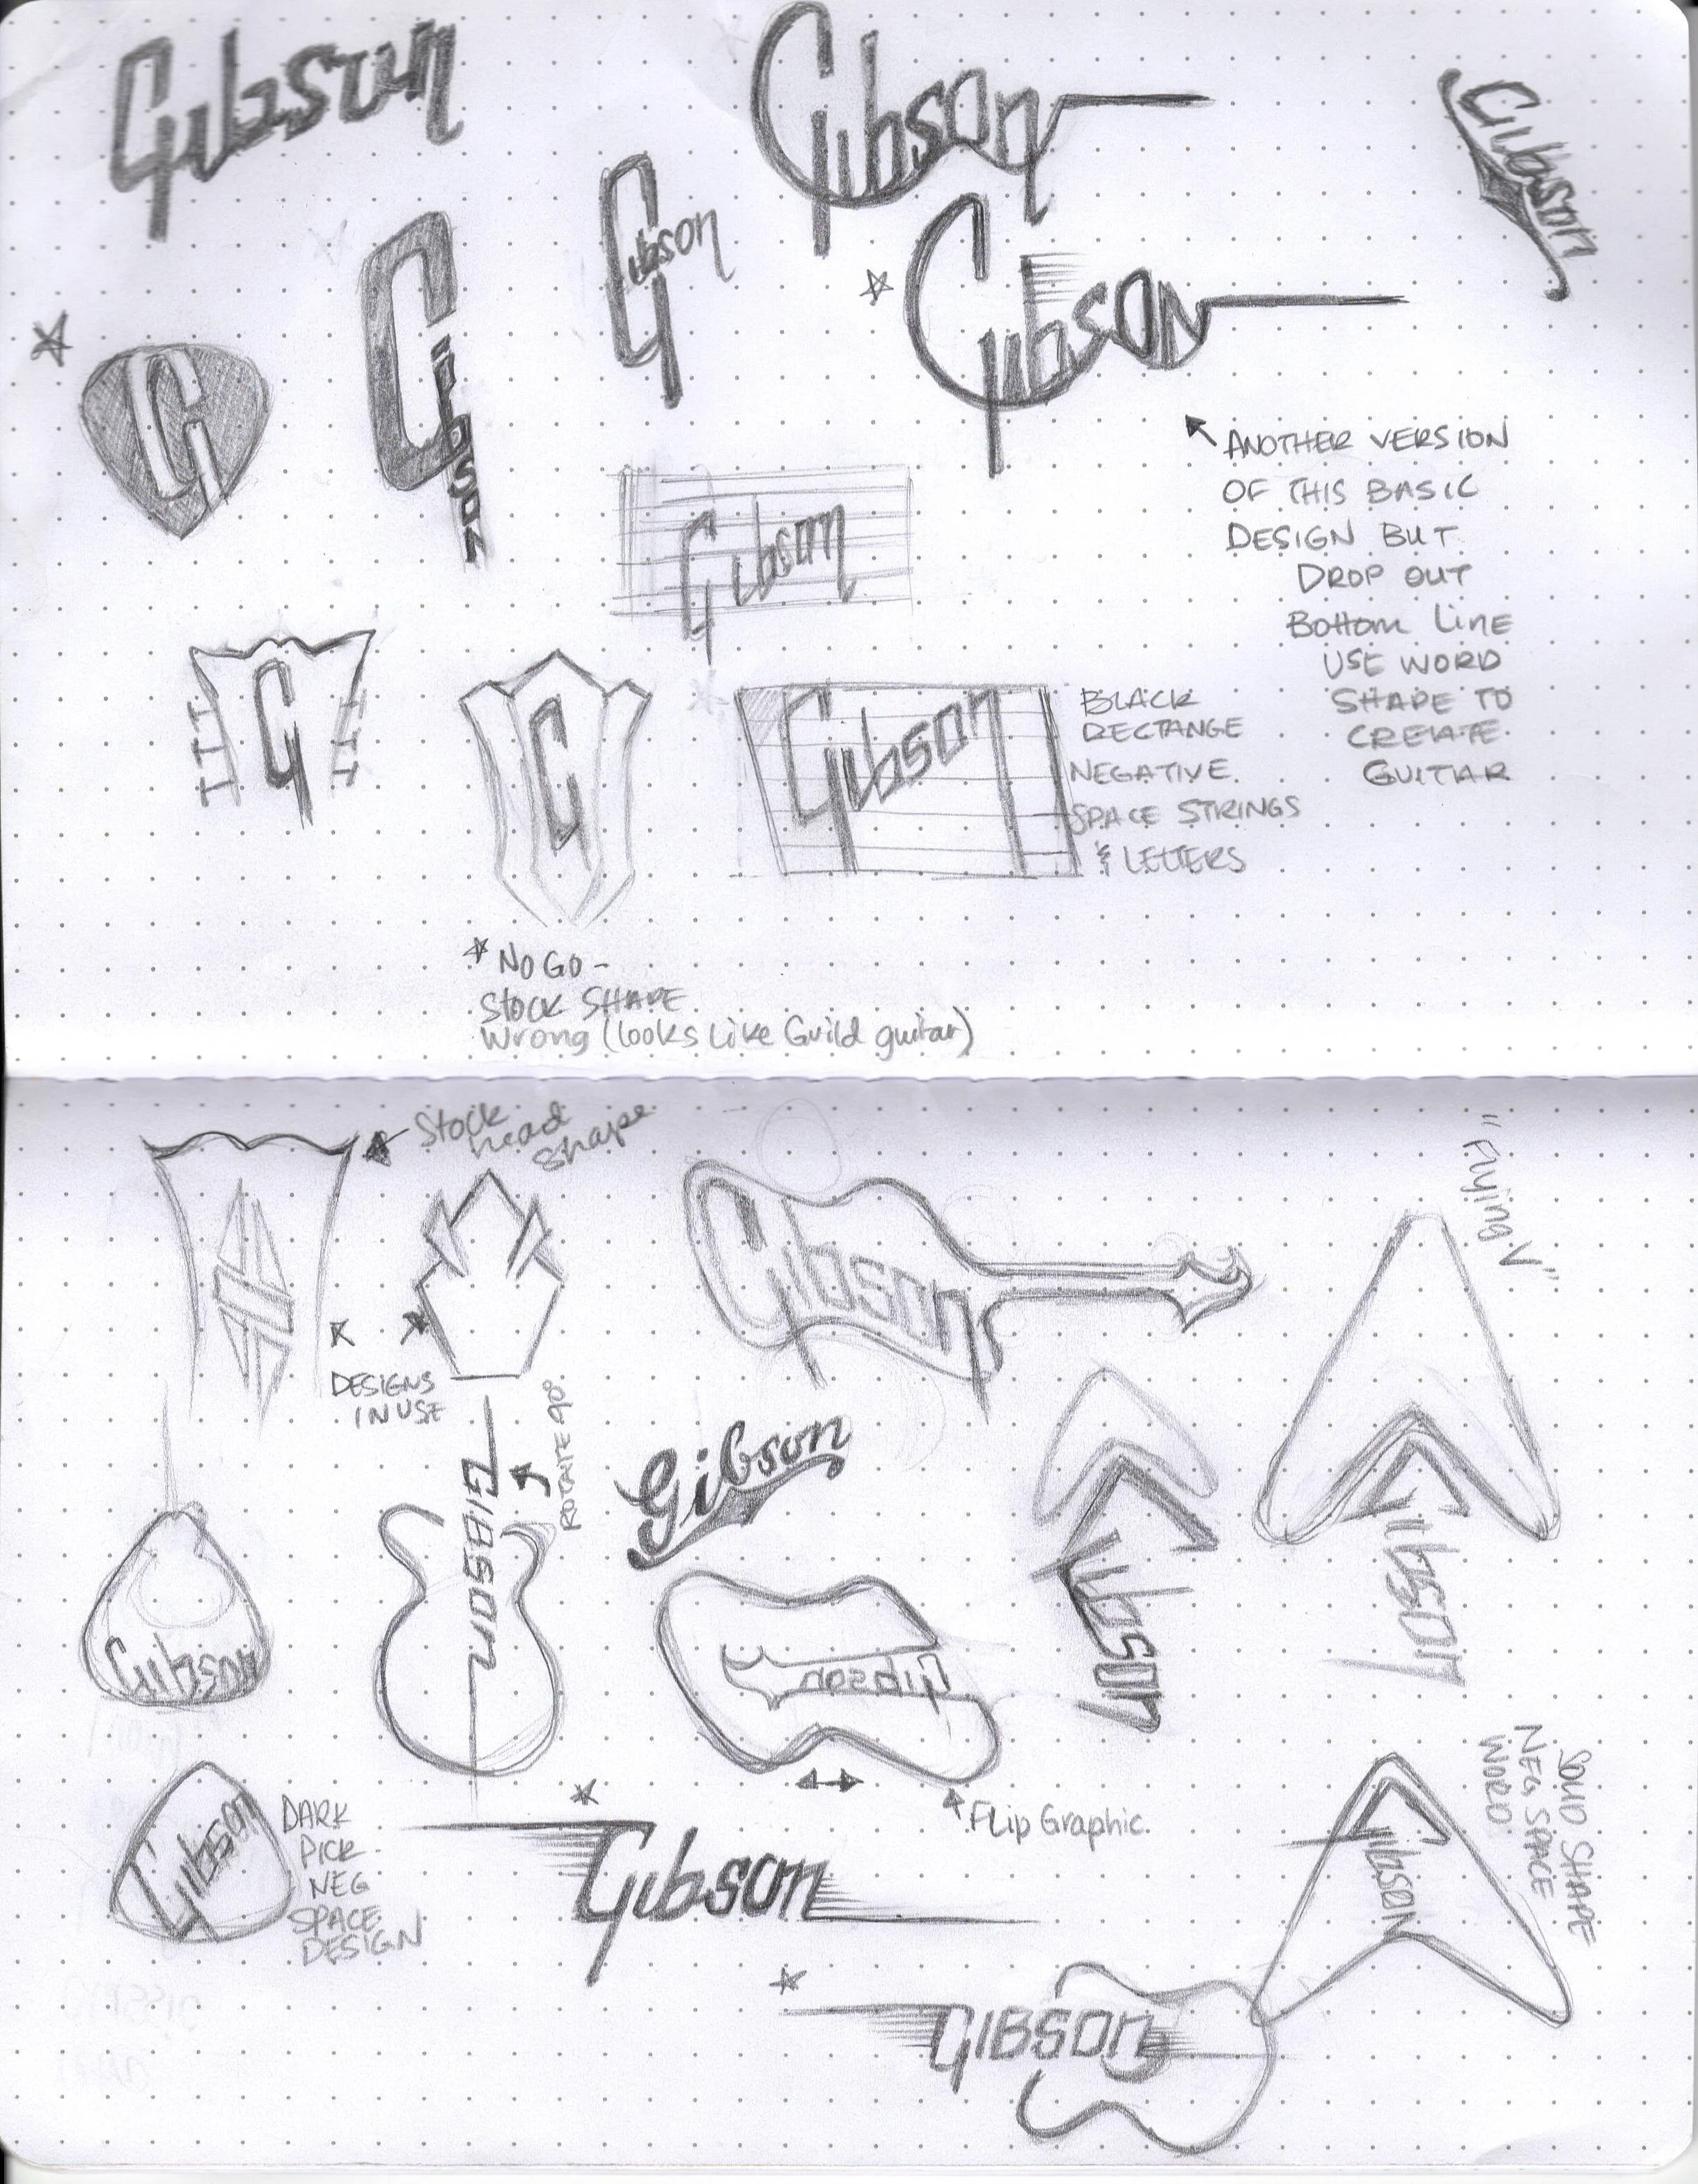 Gibson
Gibson
Gibson
Gibson
Gibson
Gibson
G
ANOTHER VERSION
OF THIS BASIC
DESIGN BUT
DROP OUT
Bottom Line
USE WORD
SHAPE TO
CREATE
GUITAR
Gibson
G
G
Gibson
BLACK
RECTANGE
NEGATIVE
SPACE STRINGS
& LETTERS
NO GO -
Stock SHAPE
Wrong (looks Like Guild guitar)
Stock
head
shape
DESIGNS
IN USE
Gibson
"Flying V"
GIBSON
ROTATE 90°
Gibson
Gibson
Gibson
Gibson
Gibson
Flip Graphic
Gibson
DARK
PICK
NEG
SPACE
DESIGN
Gibson
Gibson
SOLID SHAPE
NEG SPACE
WORD
GIBSON